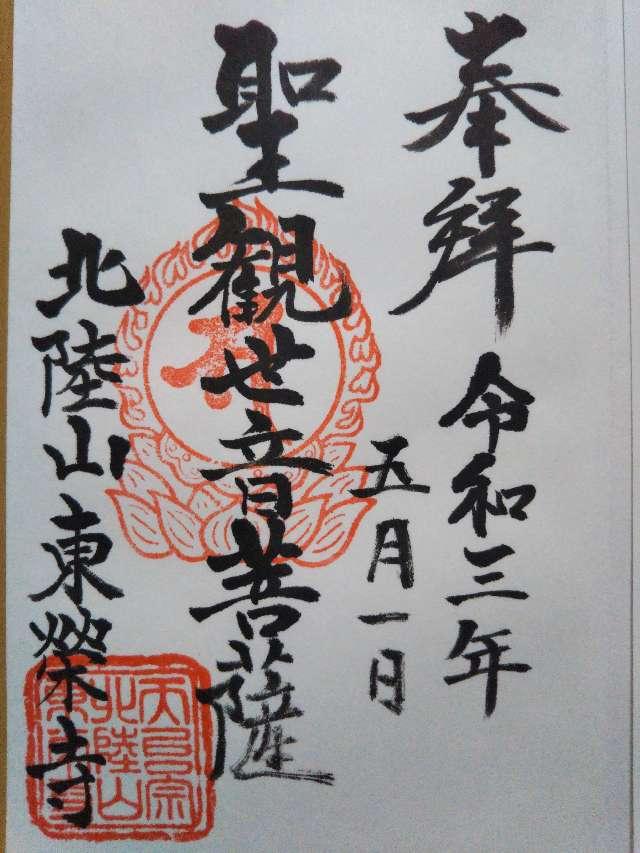 奉拜 令和三年
五月一日
聖觀世音菩薩
北陸山東榮寺
天台宗
北陸山
東榮寺